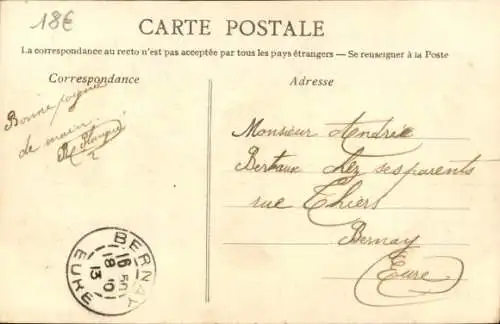 18€
CARTE POSTALE
La correspondance au recto n'est pas acceptée par tous les pays étrangers — Se renseigner à la Poste
Correspondance
Adresse
Bonne poignée
de main
Monsieur Andrée
Bertaux chez ses parents
rue Thiers
Bernay
Eure
BERNAY
16 50
18 10
13
EURE